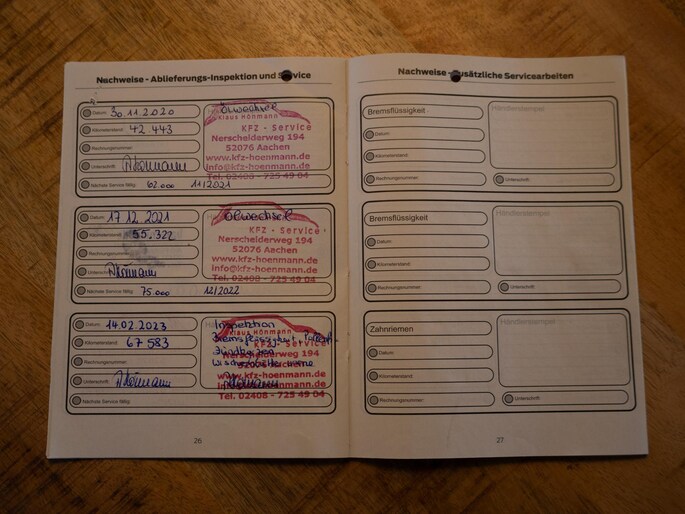 Nachweise - Ablieferungs-Inspektion und Service
Datum: 30.11.2020
Kilometerstand: 42 443
Rechnungsnummer:
Unterschrift:
Nächste Service fällig: 62.000 11/2021
Ölwechsel
Klaus Hönmann
KFZ - Service
Nerscheiderweg 194
52076 Aachen
www.kfz-hoenmann.de
info@kfz-hoenmann.de
Tel. 02408 - 725 49 04
Datum: 17.12.2021
Kilometerstand: 55.322
Rechnungsnummer:
Unterschrift:
Nächste Service fällig: 75.000 12/2022
Ölwechsel
KFZ - Service
Nerscheiderweg 194
52076 Aachen
www.kfz-hoenmann.de
info@kfz-hoenmann.de
Tel. 02408 - 725 49 04
Datum: 14.02.2023
Kilometerstand: 67 583
Rechnungsnummer:
Unterschrift:
Nächste Service fällig:
Inspektion
Klaus Hönmann
Bremsflüssigkeit
KFZ - Service
Zündkerzen
Nerscheiderweg 194
52076 Aachen
www.kfz-hoenmann.de
info@kfz-hoenmann.de
Tel. 02408 - 725 49 04
26
Nachweise - Zusätzliche Servicearbeiten
Bremsflüssigkeit
Händlerstempel
Datum:
Kilometerstand:
Rechnungsnummer:
Unterschrift:
Bremsflüssigkeit
Händlerstempel
Datum:
Kilometerstand:
Rechnungsnummer:
Unterschrift:
Zahnriemen
Händlerstempel
Datum:
Kilometerstand:
Rechnungsnummer:
Unterschrift:
27